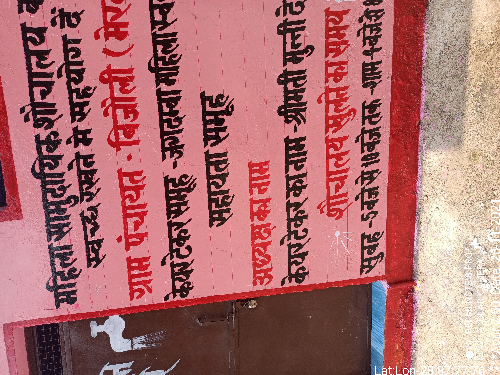 महिला सामुदायिक शौचालय
स्वच्छ रखने में सहयोग दें
ग्राम पंचायत - बिजौली (मेर
केअर टेकर समूह - जगदम्बा महिला स्व
सहायता समूह
अध्यक्ष का नाम
केयर टेकर का नाम - श्रीमती मुन्नी दे
शौचालय खुलने का समय
सुबह - 5 बजे से 10 बजे तक - शाम -
Lat:Lon